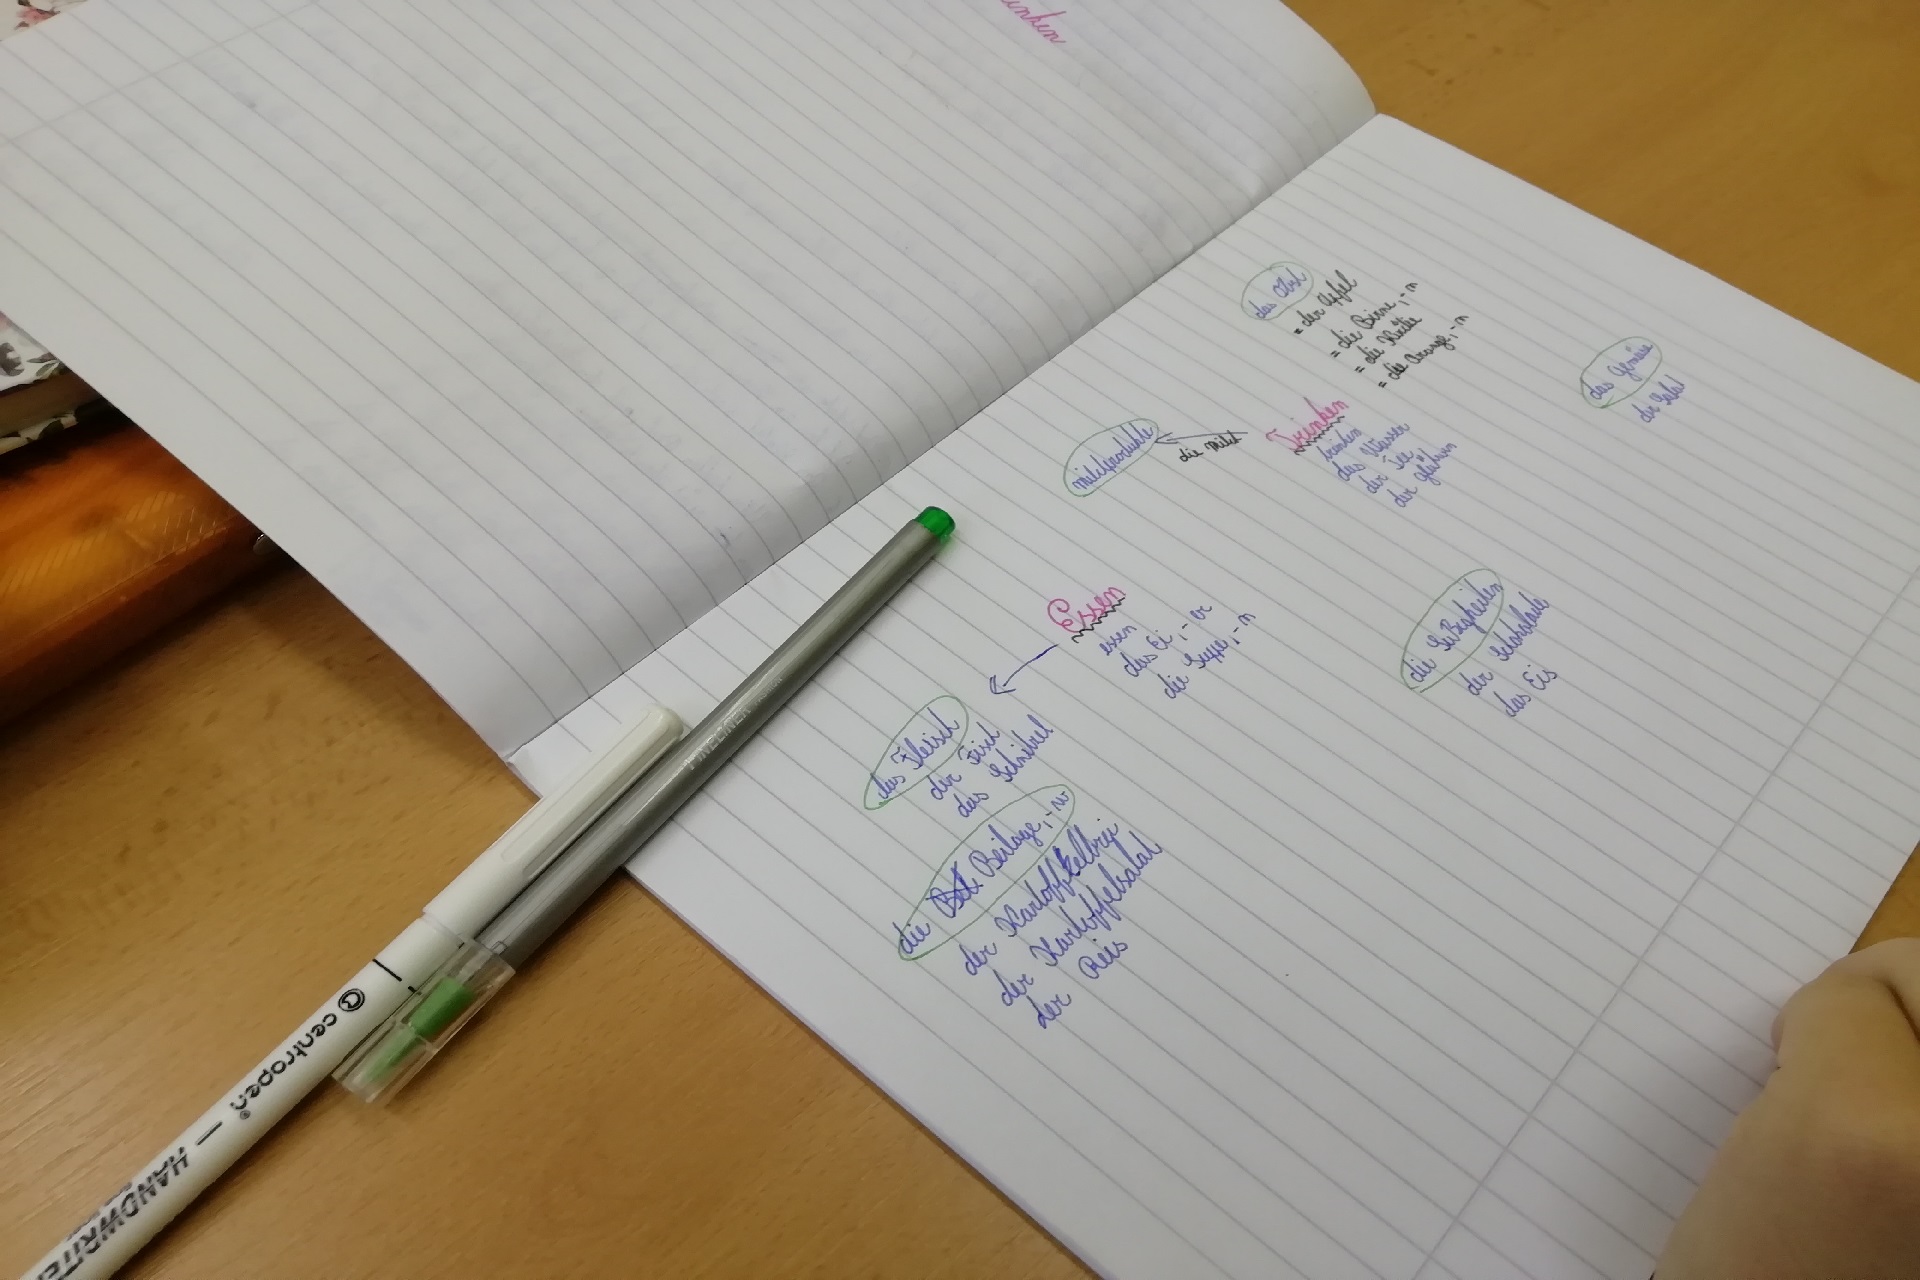 das Obst
= der Apfel
= die Birne, -n
= die
= die Orange, -n
das Gemüse
der Salat
Trinken
trinken
das Wasser
der Tee
der
die Milch
Milchprodukte
Essen
essen
das Ei, -er
die Suppe, -n
die Süßigkeiten
der Schokolade
das Eis
das Fleisch
der Fisch
das Schnitzel
die Beilage, -n
der Kartoffelbrei
der Kartoffelsalat
der Reis
centropen®
HANDWRITER
FINELINER